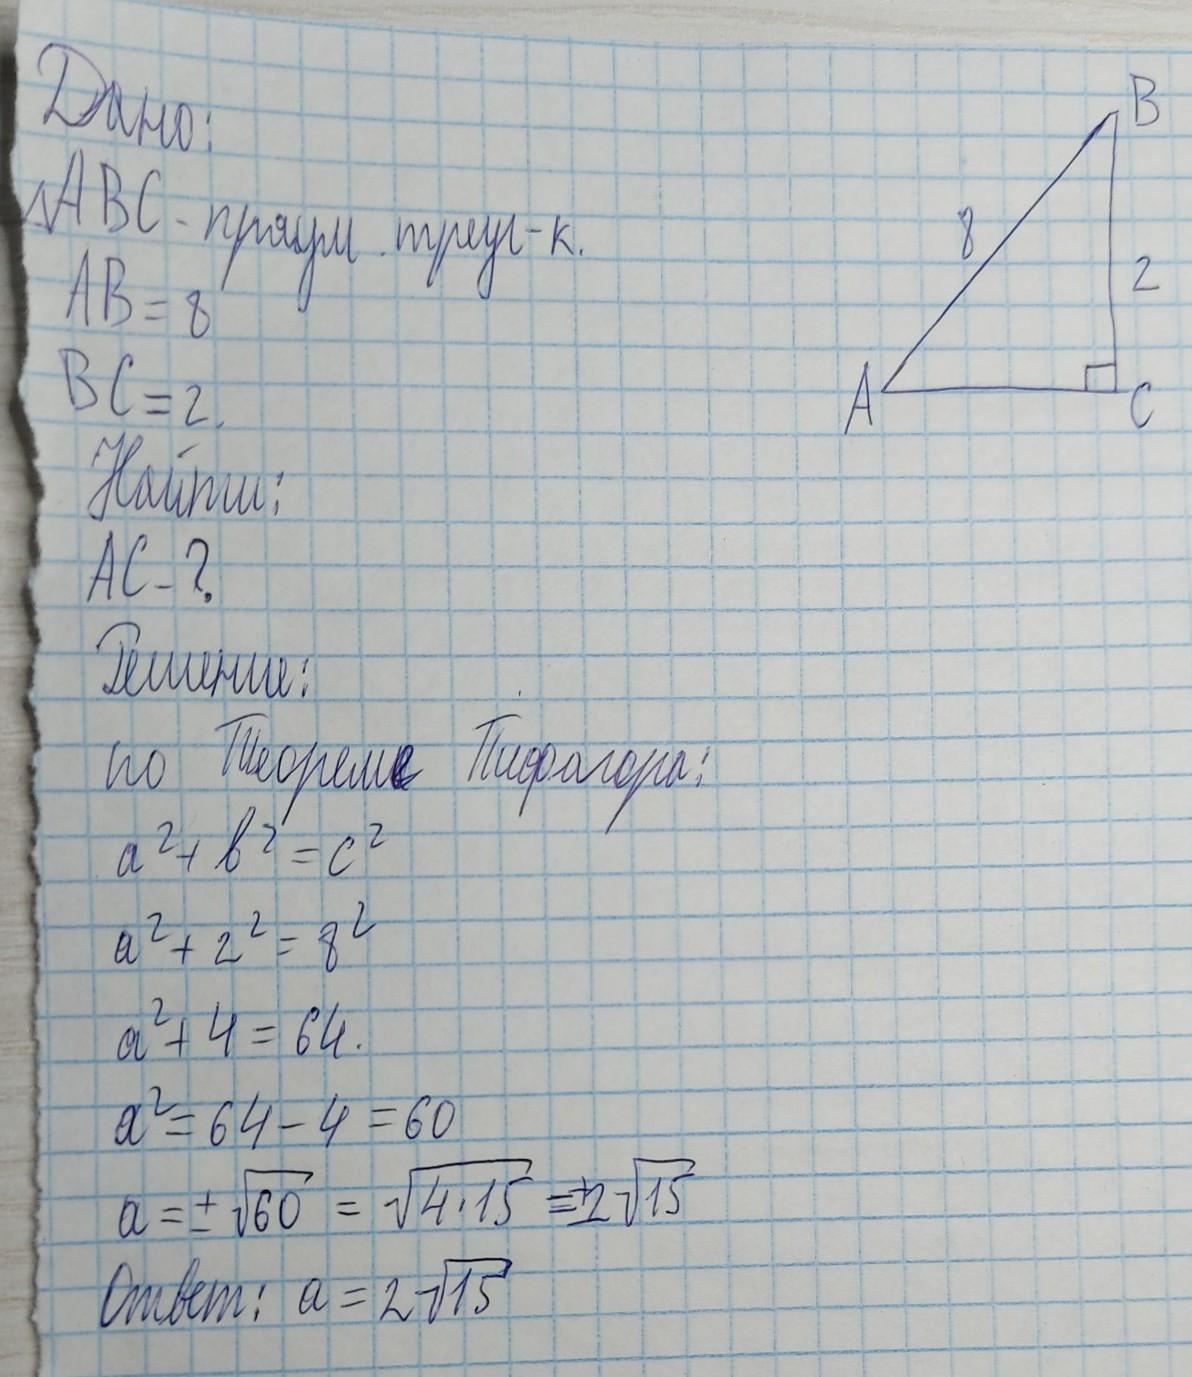 Дано:
△ABC - пряум. треуг-к.
AB = 8
BC = 2.
Найти:
AC - ?
Решение:
по Теореме Пифагора:
a² + b² = c²
a² + 2² = 8²
a² + 4 = 64.
a² = 64 - 4 = 60
a = ± √60 = √4·15 = ±2√15
Ответ: a = 2√15
B
8
2
A
C